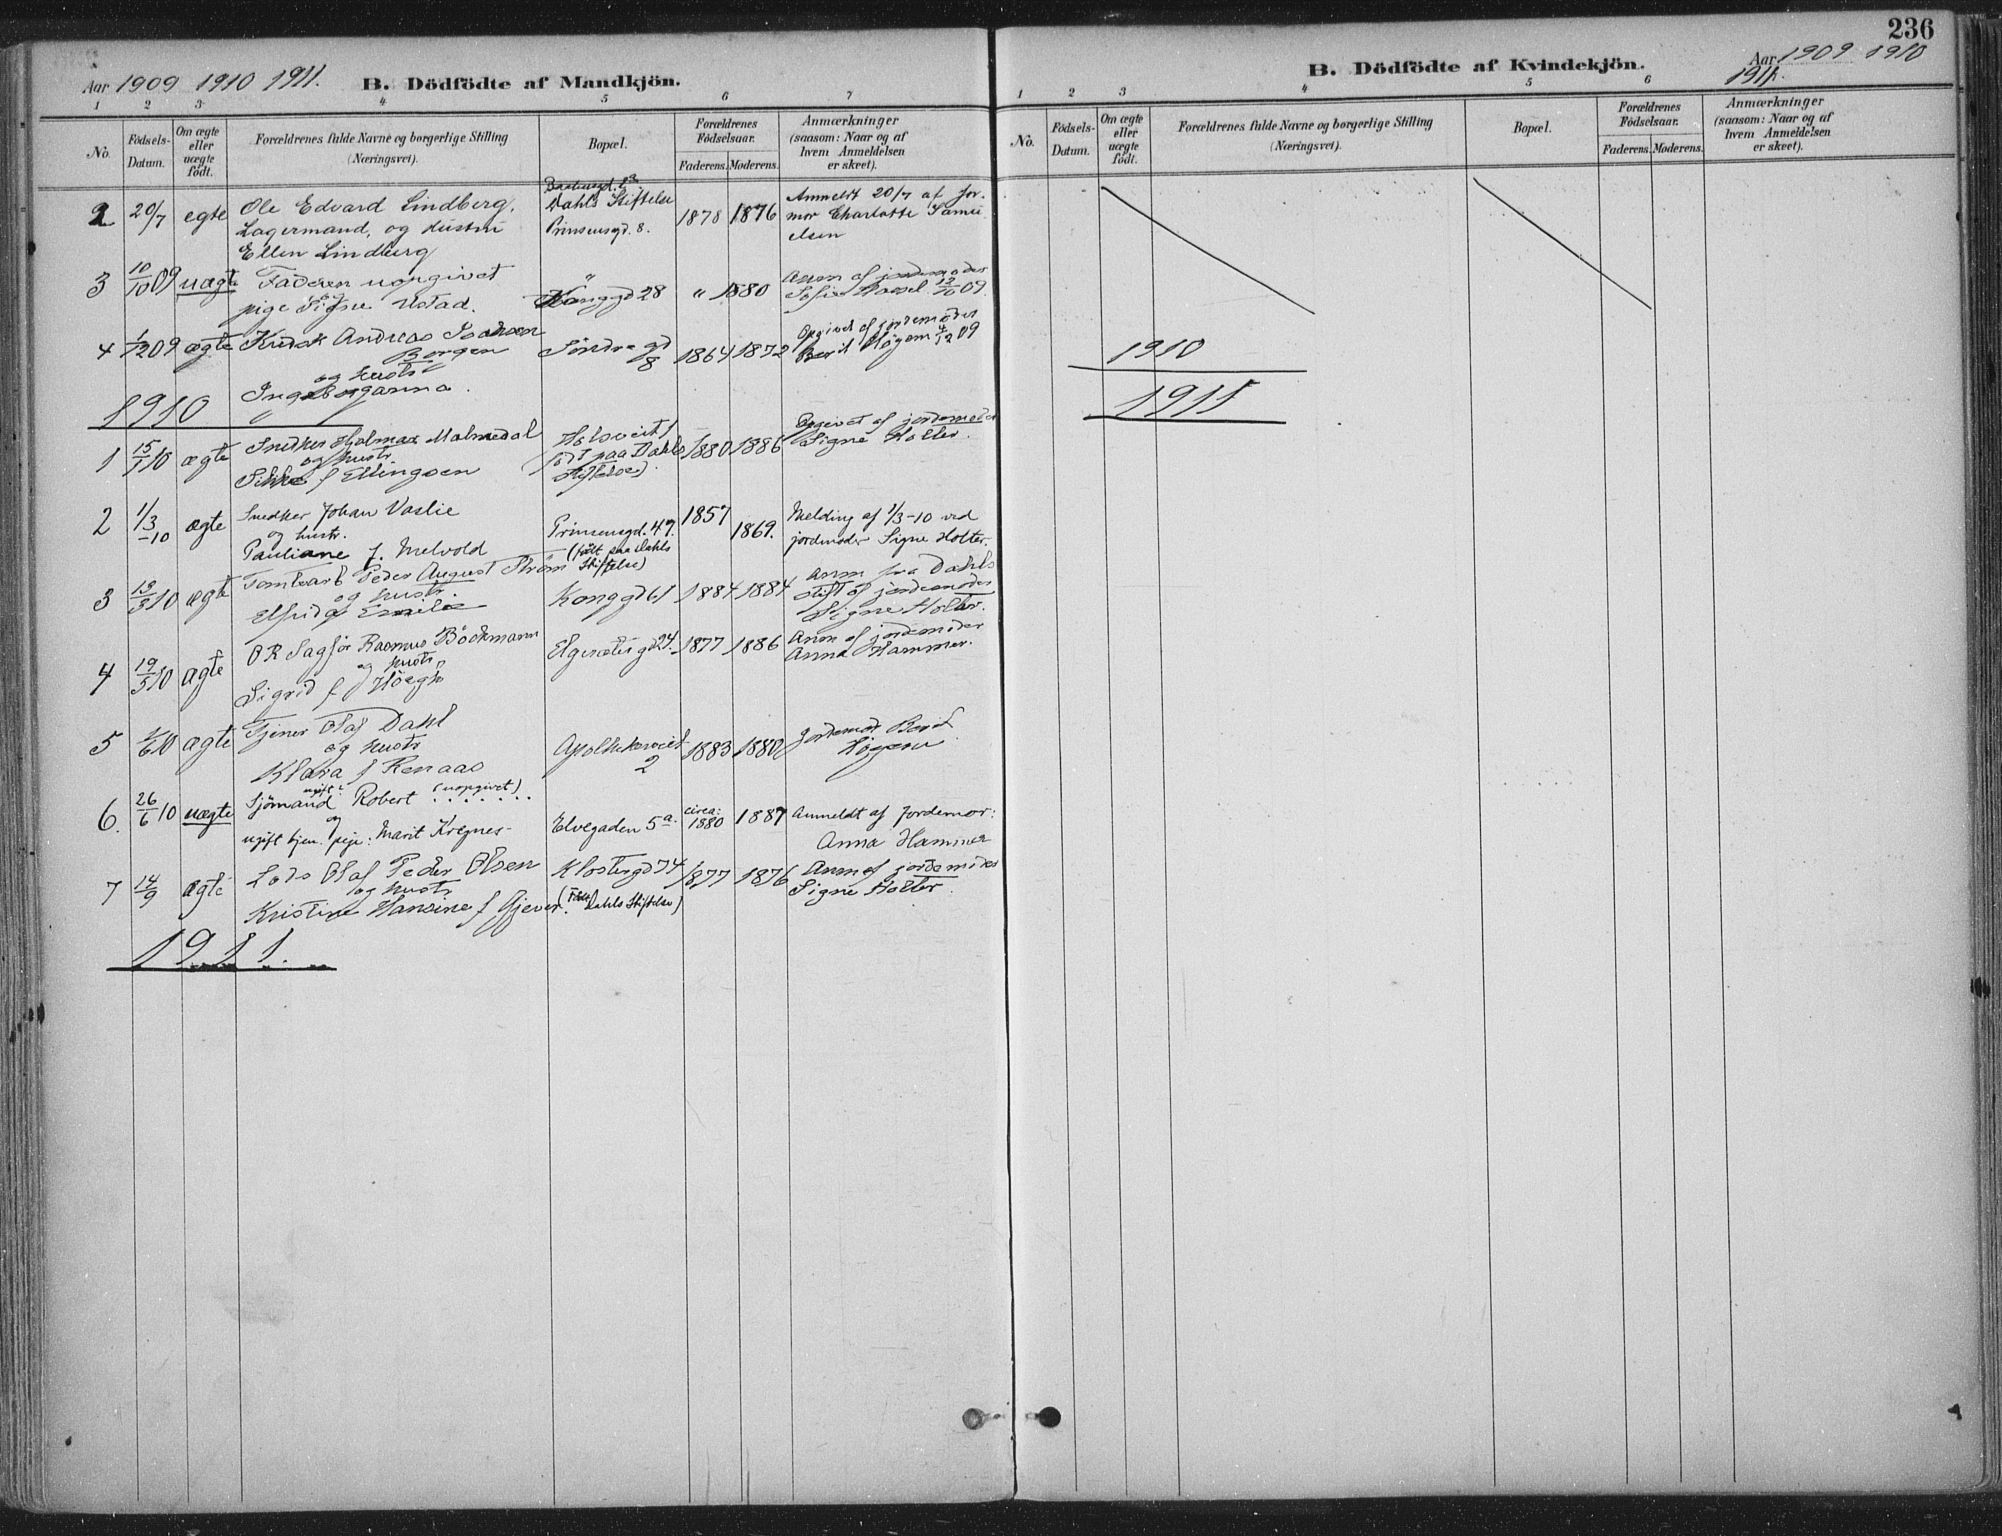 Aar 1909 1910 1911. B. Dödfödte af Mandkjön.
1 2 3 4 5 6 7
No. Födsels-Datum. Om ægte eller uægte födt. Forældrenes fulde Navne og borgerlige Stilling (Næringsvei). Bopæl. Forældrenes Födselsaar. Faderens. Moderens. Anmærkninger (saasom: Naar og af hvem Anmeldelsen er skeet).
2 20/7 egte Ole Edvard Lindberg, Dahls Stiftelse 1878 1876 Anmeldt 20/7 af jor-
Lagermand, og Hustru Prinsensgd. 8. mor Charlotte Samu
Ellen Lindberg elsen
3 10/10 09 uægte Faderen uopgivet " " 1880 Anm af jordemoder
pige Signe Ustad. Konggd 28 Sofie Hassel 12/10 09.
4 1/12 09 ægte Andreas Söndregd 8 1864 1872 Opgivet af jordemoder
Borgen Berit Högem 4/12 09
og hustr
Ingeborganna.
1910
1 15/1 10 ægte Snedker Hjalmar Malmedal 1880 1886 Opgivet af jordemoder
og hustr födt paa Dahls Signe Holter.
f Ellingsen Stiftelse)
2 1/3-10 ægte Snedker Johan Vaslie Prinsensgd. 47. 1857 1869. Melding af 1/3-10 ved
og hustr. (født paa Dahls jordmoder Signe Holter.
Pauliane f. Melvold Stiftelse)
3 13/3 10 ægte Peder August Ström Konggd 61 1884 1884 Anm fra Dahls
og hustr Stift af jordemoder
Elfrida Emilie Signe Holter.
4 19/5 10 ægte OR Sagför Rasmus Böckmann Elgesætergd 24. 1877 1886 Anm af jordemoder
og hustr Anna Hammer.
Sigrid f Höegh
5 1/6 10 ægte Tjener Olaf Dahl Apothekerveit 2 1883 1880 Jordemor Berit
og hustr Högem
Klara f Renaas
6. 26/6 10 uægte ugift: Sjömand Robert (uopgivet) Elvegaden 5a. circa: 1880 1887 Anmeldt af Jordemor:
og Anna Hammer
ugift tjen. pige: Marit Kregnes-
7 14/9 ægte Lods Olaf Peder Olsen Klostergd 74 1877 1876 Anm af jordemoder
og hustr (Föd Dahls Stiftelse) Signe Holter.
Kristine Hansine f Gjever.
1911.
236
B. Dödfödte af Kvindekjön. Aar 1909 1910
1911.
1 2 3 4 5 6
No. Födsels-Datum. Om ægte eller uægte födt. Forældrenes fulde Navne og borgerlige Stilling (Næringsvei). Bopæl. Forældrenes Födselsaar. Faderens. Moderens. Anmærkninger (saasom: Naar og af hvem Anmeldelsen er skeet).
1910
1911